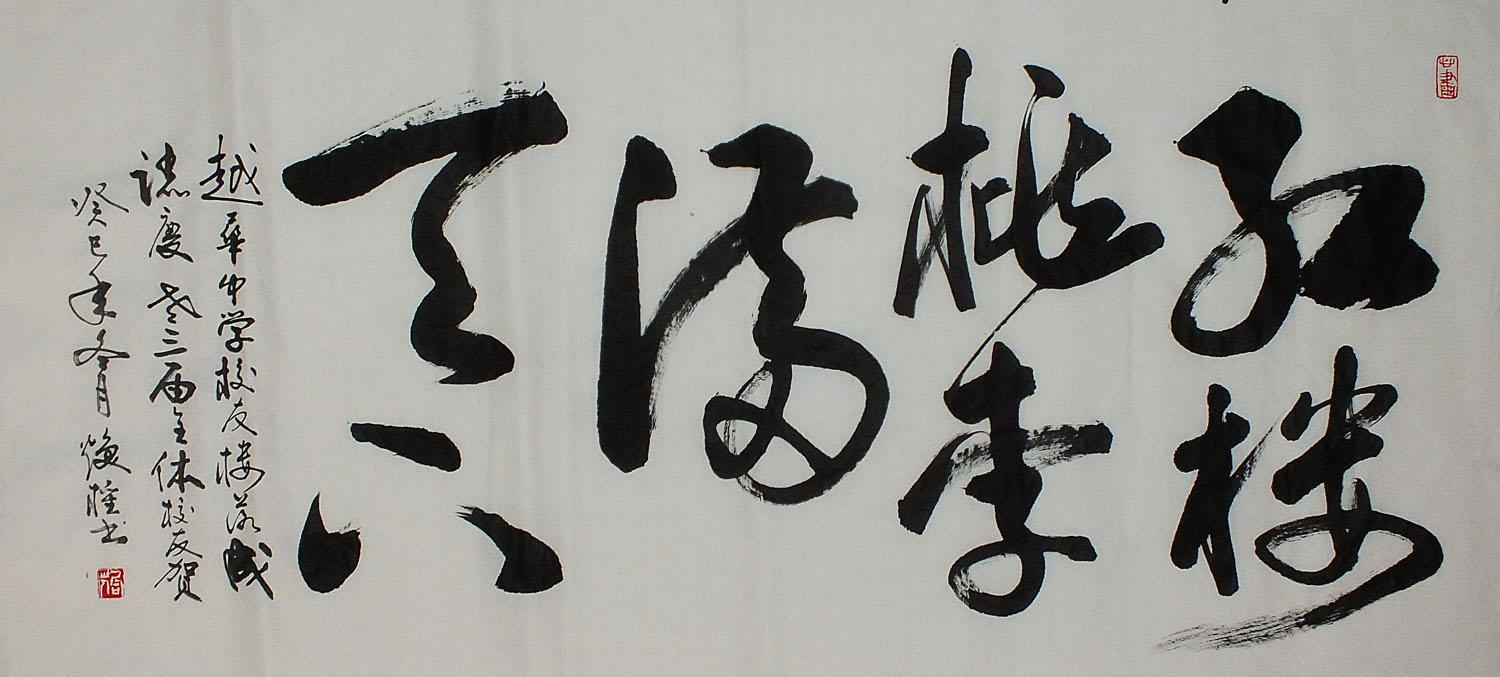 红楼
桃李
满
天下
越華中学校友楼落成
誌庆 老三届全体校友贺
癸巳年冬月 焕雄书